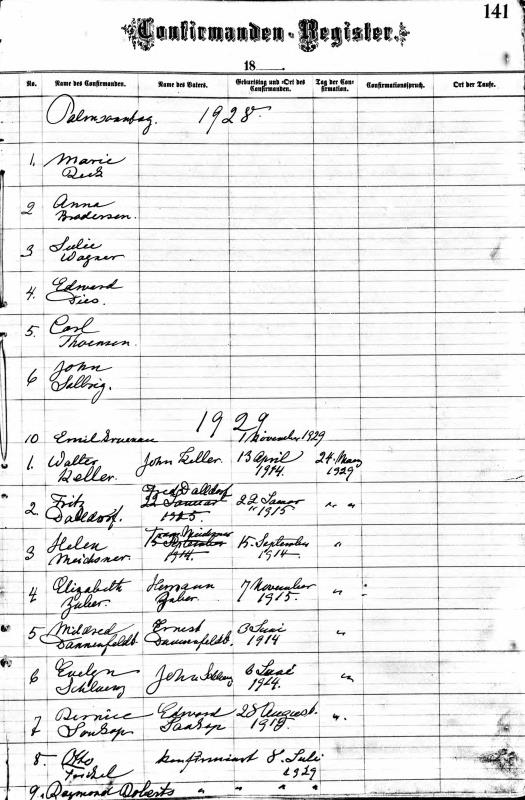 141
Confirmanden-Register.
18
No. Name des Confirmanden. Name des Vaters. Geburtstag und -Ort des Confirmanden. Tag der Confirmation. Confirmationsspruch. Ort der Taufe.
Palmsonntag. 1928.
1. Marie
2 Anna
Brodersen.
3 Julie
Wagner
4. Edward
Dies.
5. Carl
Thomsen.
6 John
Selbrig.
1929
10 Emil Gruenau 1 November 1929
1. Walter Keller. John Keller. 13 April 1914. 24. März 1929
2. Fritz Dalldorf. Fred Dalldorf 22 Januar 1915. 22 Januar 1915 " "
3 Helen Meichsner 15 September 1914. 15. September 1914 "
4 Elizabeth Zuber. Hermann Zuber. 17 November 1915. " "
5 Mildred Dannenfeldt Ernest Dannenfeldt. 3 Juni 1914 "
6 Evelyn John 6 Juni 1914. "
7 Bernice Edward 28 August. "
8. Otto konfirmiert 8. Juli 1929
9. Raymond Roberts " " " "